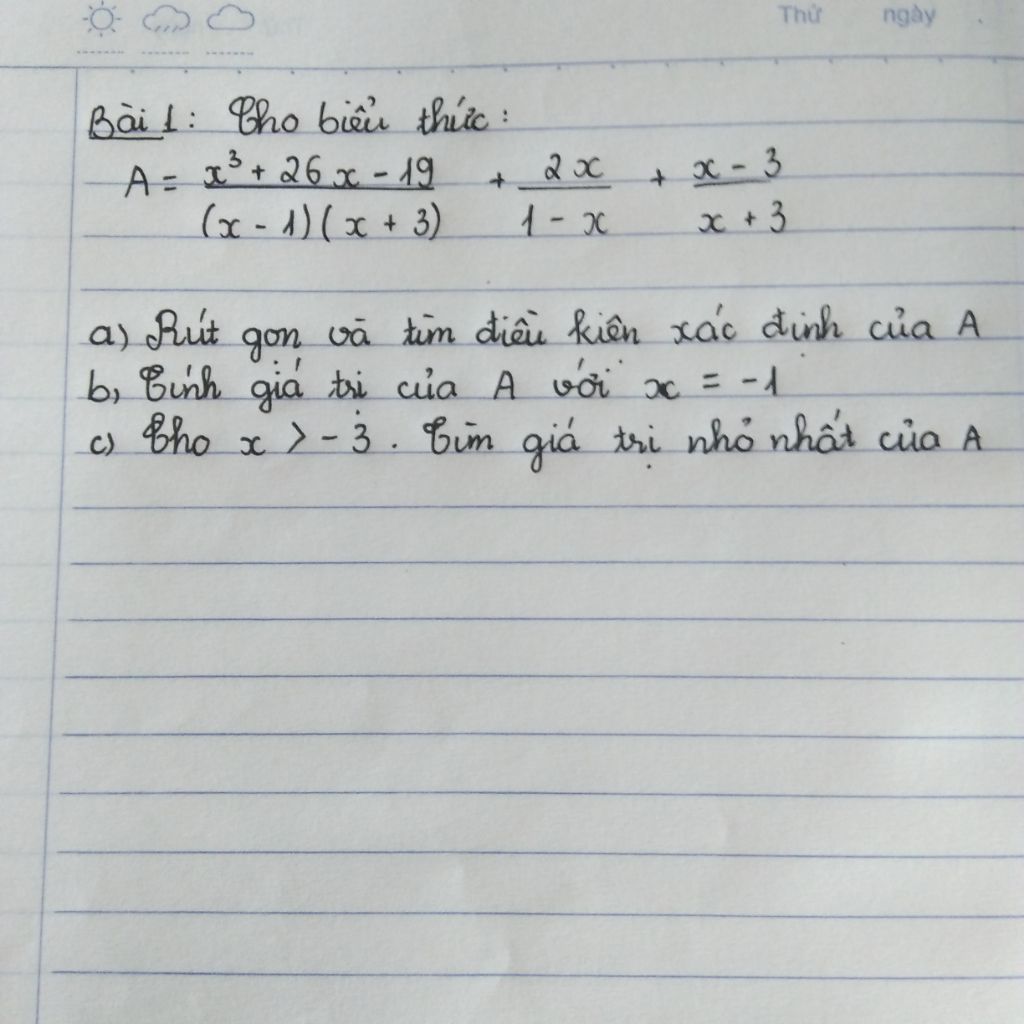 Thứ ngày
Bài 1: Cho biểu thức:
A = \frac{x^3 + 26x - 19}{(x - 1)(x + 3)} + \frac{2x}{1 - x} + \frac{x - 3}{x + 3}
a) Rút gọn và tìm điều kiện xác định của A
b, Tính giá trị của A với x = -1
c) Cho x > -3. Tìm giá trị nhỏ nhất của A